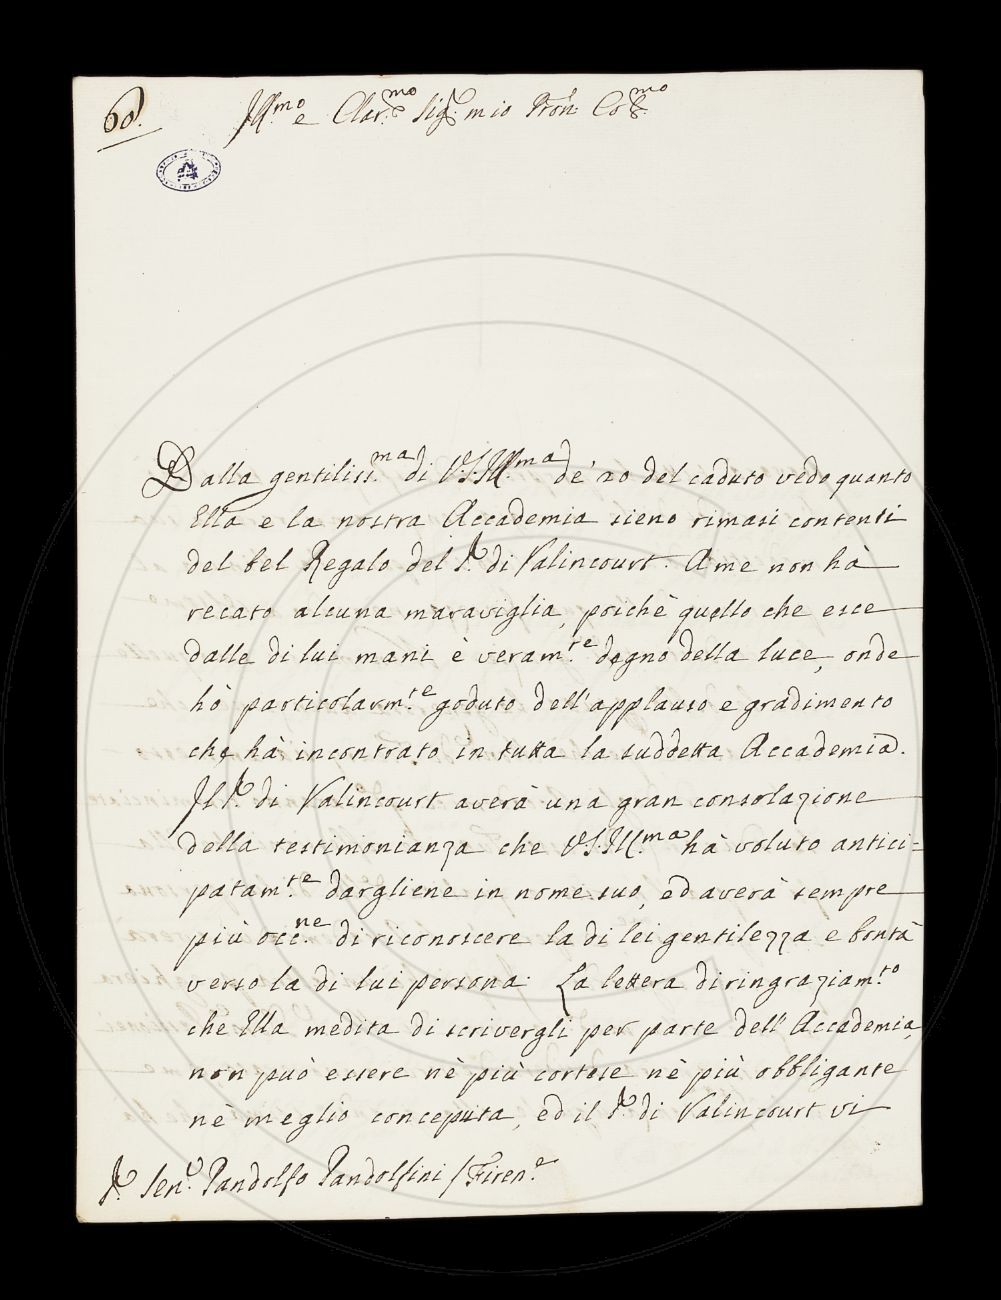 60.
Ill.mo e Clar.mo Sig.r mio Pron Co.mo
Dalla gentiliss.ma di V.S. Ill.ma de' 20 del caduto vedo quanto
Ella e la nostra Accademia sieno rimasi contenti
del bel Regalo del S.r di Valincourt. A me non hà
recato alcuna maraviglia, poichè quello che esce
dalle di lui mani è veram.te degno della luce, onde
hò particolarm.te goduto dell'applauso e gradimento
che hà incontrato in tutta la suddetta Accademia.
Il S.r di Valincourt averà una gran consolazione
della testimonianza che V.S. Ill.ma hà voluto antici=
patam.te dargliene in nome suo, ed averà sempre
più occ.ne di riconoscere la di lei gentilezza e bontà
verso la di lui persona. La lettera di ringraziam.to
che Ella medita di scrivergli per parte dell'Accademia,
non può essere nè più cortese nè più obbligante
nè meglio conceputa, ed il S.r di Valincourt vi
S.r Sen.e Pandolfo Pandolfini / Firen.e